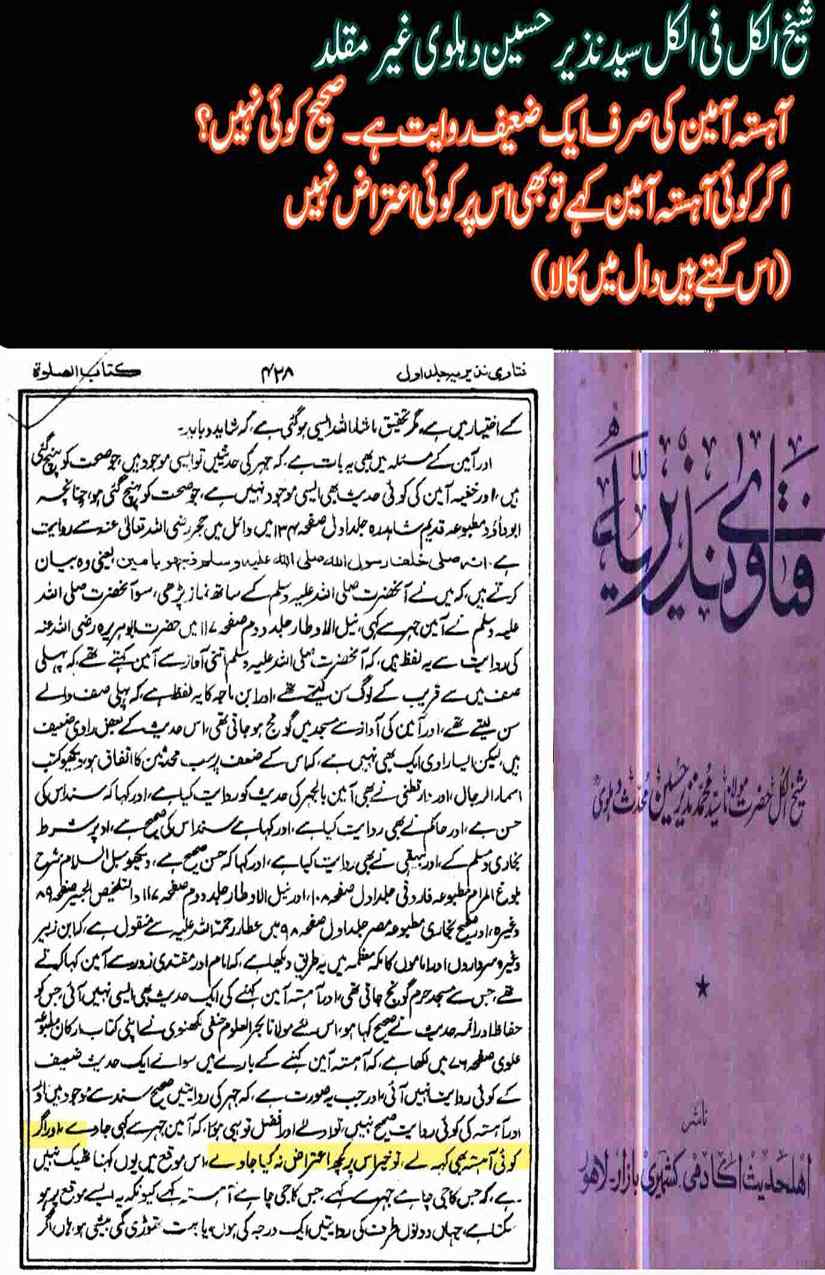 شیخ الکل فی الکل سید نذیر حسین دہلوی غیر مقلد
آہستہ آمین کی صرف ایک ضعیف روایت ہے۔ صحیح کوئی نہیں؟
اگر کوئی آہستہ آمین کہے تو بھی اس پر کوئی اعتراض نہیں
(اس کہتے ہیں دال میں کالا)
فتاوی نذیریہ جلد اول ۴۲۸ کتاب الصلوۃ
کے اختیار میں ہے، مگر تحقیق ماشاء اللہ ایسی ہو گئی ہے، کہ شاید و باید۔
اور آمین کے مسئلہ میں بھی یہ بات ہے، کہ جہر کی حدیثیں تو ایسی موجود ہیں، جو صحت کو پہنچ گئی
ہیں، اور خفیہ آمین کی کوئی حدیث بھی ایسی موجود نہیں ہے، جو صحت کو پہنچ گئی ہو، چنانچہ
ابو داؤد مطبوعہ قدیم شاہدرہ جلد اول صفحہ ۱۳۴ میں وائل بن حجر رضی اللہ تعالیٰ عنہ سے روایت
ہے، انہ صلی خلف رسول اللہ صلی اللہ علیہ وسلم فجہر بامین، یعنی وہ بیان
کرتے ہیں، کہ میں نے آنحضرت صلی اللہ علیہ وسلم کے ساتھ نماز پڑھی، سو آنحضرت صلی اللہ
علیہ وسلم نے آمین جہر سے کہی، نیل الاوطار جلد دوم صفحہ ۱۱۷ میں حضرت ابو ہریرہ رضی اللہ عنہ
کی روایت سے یہ لفظ ہیں، کہ آنحضرت صلی اللہ علیہ وسلم اتنی آواز سے آمین کہتے تھے، کہ پہلی
صف میں سے قریب کے لوگ سن لیتے تھے، اور ابن ماجہ کا یہ لفظ ہے، کہ پہلی صف والے
سن لیتے تھے، اور آمین کی آواز سے مسجد میں گونج ہو جاتی تھی، اس حدیث کے بعض راوی ضعیف
ہیں، لیکن ایسا راوی ایک بھی نہیں ہے، کہ اس کے ضعف پر سب محدثین کا اتفاق ہو، دیکھو کتب
اسماء الرجال، اور دارقطنی نے بھی آمین بالجہر کی حدیث کو روایت کیا ہے، اور کہا کہ سند اس کی
حسن ہے، اور حاکم نے بھی روایت کیا ہے، اور کہا ہے، سند اس کی صحیح ہے، اوپر شرط
بخاری و مسلم کے، اور بیہقی نے بھی روایت کیا ہے، اور کہا کہ حسن صحیح ہے، دیکھو سبل السلام شرح
بلوغ المرام مطبوعہ فاروقی جلد اول صفحہ ۱۰۸، اور نیل الاوطار جلد دوم صفحہ ۱۱۷ والتلخیص الحبیر صفحہ ۸۹
وغیرہ، اور صحیح بخاری مطبوعہ مصر جلد اول صفحہ ۹۸ میں عطار رحمۃ اللہ علیہ سے منقول ہے، کہ ابن زبیر
وغیرہ سرداروں اور اماموں کا مکہ معظمہ میں یہ طریق دیکھا ہے، کہ امام اور مقتدی زور سے آمین کہا کرتے
تھے، جس سے مسجد حرم گونج جاتی تھی، اور آہستہ آمین کہنے کی ایک حدیث بھی ایسی نہیں آئی، جس کو
حفاظ اور ائمہ حدیث نے صحیح کہا ہو، اس لئے مولانا بحر العلوم حنفی لکھنوی نے اپنی کتاب ارکان مطبوعہ
علوی صفحہ ۷۶ میں لکھا ہے، کہ آہستہ آمین کہنے کے بارے میں سوائے ایک حدیث ضعیف
کے کوئی روایت نہیں آئی، اور جب یہ صورت ہے، کہ جہر کی روایتیں صحیح سند سے موجود ہیں
اور آہستہ کی کوئی روایت صحیح نہیں، تو اولیٰ اور افضل تو یہی ہوا، کہ آمین جہر سے کہی جاوے، اور اگر
کوئی آہستہ بھی کہہ لے، تو خیر اس پر کچھ اعتراض نہ کیا جاوے، اس موقع میں یوں کہنا ٹھیک نہیں
ہے، کہ جس کا جی چاہے جہر سے کہے، جس کا جی چاہے آہستہ کہے، کیونکہ یہ ایسے موقع پر ہو
سکتا ہے، جہاں دونوں طرف کی روایتیں ایک درجہ کی ہوں، یا بہت تھوڑی کمی بیشی ہو، ہاں اگر
فتاوی نذیریہ
شیخ الکل حضرت مولانا سید محمد نذیر حسین محدث دہلوی
ناشر
اهلحدیث اکادمی کشمیری بازار۔ لاہور